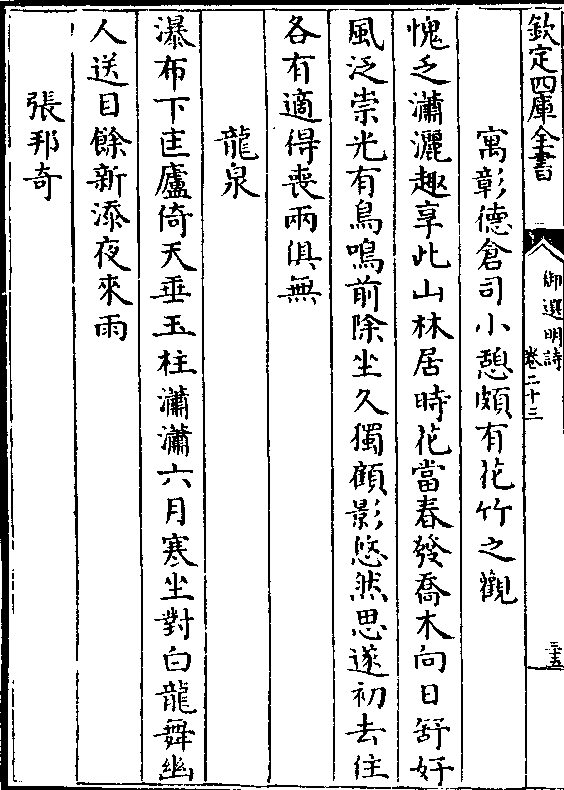 欽定四庫全書
御選明詩
卷二十三
三五
寓彰德倉司小憩頗有花竹之觀
愧乏瀟灑趣享此山林居時花當春發喬木向日舒好
風泛崇光有鳥鳴前除坐久獨顧影悠然思遂初去住
各有適得喪兩俱無
龍泉
瀑布下匡廬倚天垂玉柱瀟瀟六月寒坐對白龍舞幽
人送目餘新添夜來雨
張邦奇